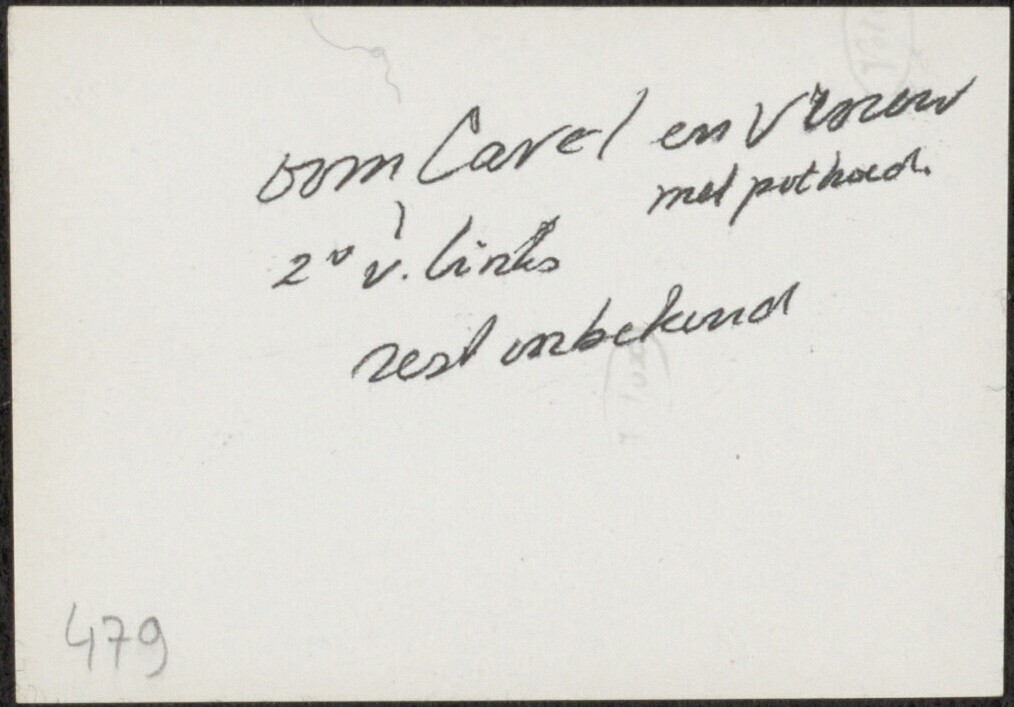 oom Carel en Vrouw
met pothoed.
2e v. links
rest onbekend
479